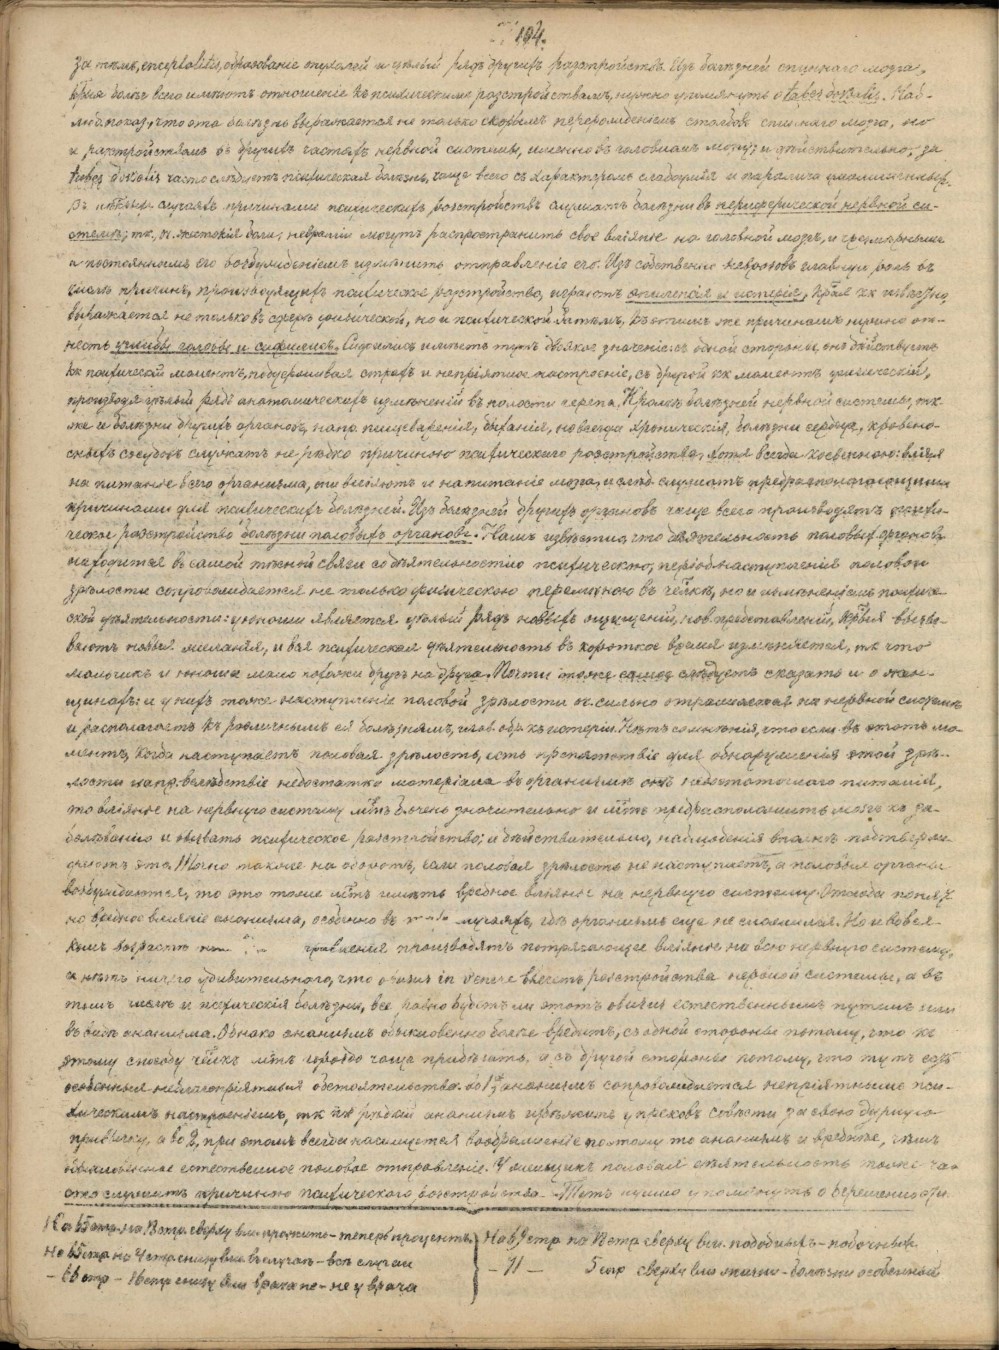 194.
за тѣмъ, encephalitis, образованіе опухолей и цѣлый рядъ другихъ разстройствъ. Изъ болѣзней спиннаго мозга,
кт̃рыя болѣе всего имѣютъ отношеніе къ психическимъ разстройствамъ, нужно упомянуть о tabes dorsalis. Наб-
люд. показ., что эта болѣзнь выражается не только сѣрымъ перерожденіемъ столбовъ спиннаго мозга, но
и разстройствамъ въ другихъ частяхъ нервной системы, именно въ головномъ мозгу; и дѣйствительно, за
tabes dorsalis часто слѣдуетъ психическая болѣзнь, чаще всего съ характеромъ слабоумія и паралича умалишенныхъ.
Въ случаяхъ причинами психическихъ разстройствъ служатъ болѣзни въ периферической нервной си-
стемѣ; тк. н. жестокія боли; невралгіи могутъ распространить свое вліяніе на головной мозгъ, и чрезмѣрнымъ
и постояннымъ его возбужденіемъ измѣнить отправленіе его. Изъ собственно неврозовъ главную роль въ
числѣ причинъ, производящихъ психическое разстройство, играютъ эпилепсія и истерія, кт̃рыя кк извѣстно
выражается не только въ сферѣ физической, но и психической. Затѣмъ, къ этимъ же причинамъ нужно от-
несть ушибы головы и сифилисъ. Сифилисъ имѣетъ тутъ двоякое значеніе: съ одной стороны, онъ дѣйствуетъ
кк психическій моментъ, поддерживая страхъ и непріятное настроеніе, съ другой кк моментъ физическій,
производя цѣлый рядъ анатомическихъ измѣненій въ полости черепа. Кромѣ болѣзней нервной системы, тк
же и болѣзни другихъ органовъ, напр. пищеваренія, дыханія, но всегда хроническія, болѣзни сердца, кровено-
сныхъ сосудовъ служатъ не рѣдко причиною психическаго разстройства, хотя всегда косвенною: вліяя
на питаніе всего организма, они вліяютъ и на питаніе мозга, и служатъ предрасполагающими
причинами для психическихъ болѣзней. Изъ болѣзней другихъ органовъ чаще всего производятъ психи-
ческое разстройство болѣзни половыхъ органовъ. Намъ извѣстно, что дѣятельность половыхъ органовъ
находится въ самой тѣсной связи со дѣятельностію психическою; періодъ наступленія половой
зрѣлости сопровождается не только физическою перемѣною въ чл̃вкѣ, но и измѣненіемъ психиче-
ской дѣятельности: у юноши является цѣлый рядъ новыхъ ощущеній, нов. представленій, кт̃рыя вызы-
ваютъ новыя желанія, и вся психическая дѣятельность въ короткое время измѣняется, тк что
мальчикъ и юноша мало похожи другъ на друга. Почти тоже самое слѣдуетъ сказать и о жен-
щинахъ: и у нихъ тоже наступленіе половой зрѣлости оч. сильно отражается на нервной системѣ
и располагаетъ къ различнымъ ея болѣзнямъ, глав. обр. къ истеріи. Нѣтъ сомнѣнія, что если въ этотъ мо-
ментъ, когда наступаетъ половая зрѣлость, есть препятствіе для обнаруженія этой зрѣ-
лости напр. вслѣдствіе недостатка матеріала въ организмѣ отъ недостаточнаго питанія,
то вліяніе на нервную систему значительно и предрасположить мозгъ къ за-
болѣванію и вызвать психическое разстройство; и дѣйствительно, наблюденія вполнѣ подтвержд-
аютъ это. Точно также на оборотъ, если половая зрѣлость не наступаетъ, а половые органы
возбуждаются, то это тоже имѣть вредное вліяніе на нервную систему. Отсюда понят-
но вредное вліяніе онанизма, особенно въ случаяхъ, гдѣ организмъ еще не сложился. Но и во вся-
комъ возрастѣ производятъ потрясающее вліяніе на всю нервную систему,
и нѣтъ ничего удивительнаго, что abusus in Venere ввесть разстройства нервной системы, а въ
томъ числѣ и психическія болѣзни, все равно будетъ ли этотъ abusus естественнымъ путемъ или
въ видѣ онанизма. Однако онанизмъ обыкновенно болѣе вредитъ, съ одной стороны потому, что къ
этому способу гораздо чаще прибѣгать, и съ другой стороны потому, что тутъ есть
особенныя неблагопріятныя обстоятельства: во 1х онанизмъ сопровождается непріятнымъ пси-
хическимъ настроеніемъ, тк кк рѣдкій онанистъ упрековъ совѣсти за свою дурную
привычку, а во 2, при этомъ всегда насилуется воображеніе, поэтому то онанизмъ и вреднѣе, чѣмъ
естественное половое отправленіе. У женщинъ половая дѣятельность тоже ча-
сто служитъ причиною психическаго разстройства. — Тутъ нужно упомянуть о беременности.
На 5 стр. на 13 стр. сверху вм. прожито – теперь процентъ
На 5 стр. на 4 стр. снизу вм. въ случаѣ – всѣ случаи
– 6 стр. – 16 стр. снизу вм. врача не – не у врача
На 9 стр. на 13 стр. сверху вм. подобныхъ – побочныхъ
– 11 – 5 стр. сверху вм. жизни – болѣзни особенный